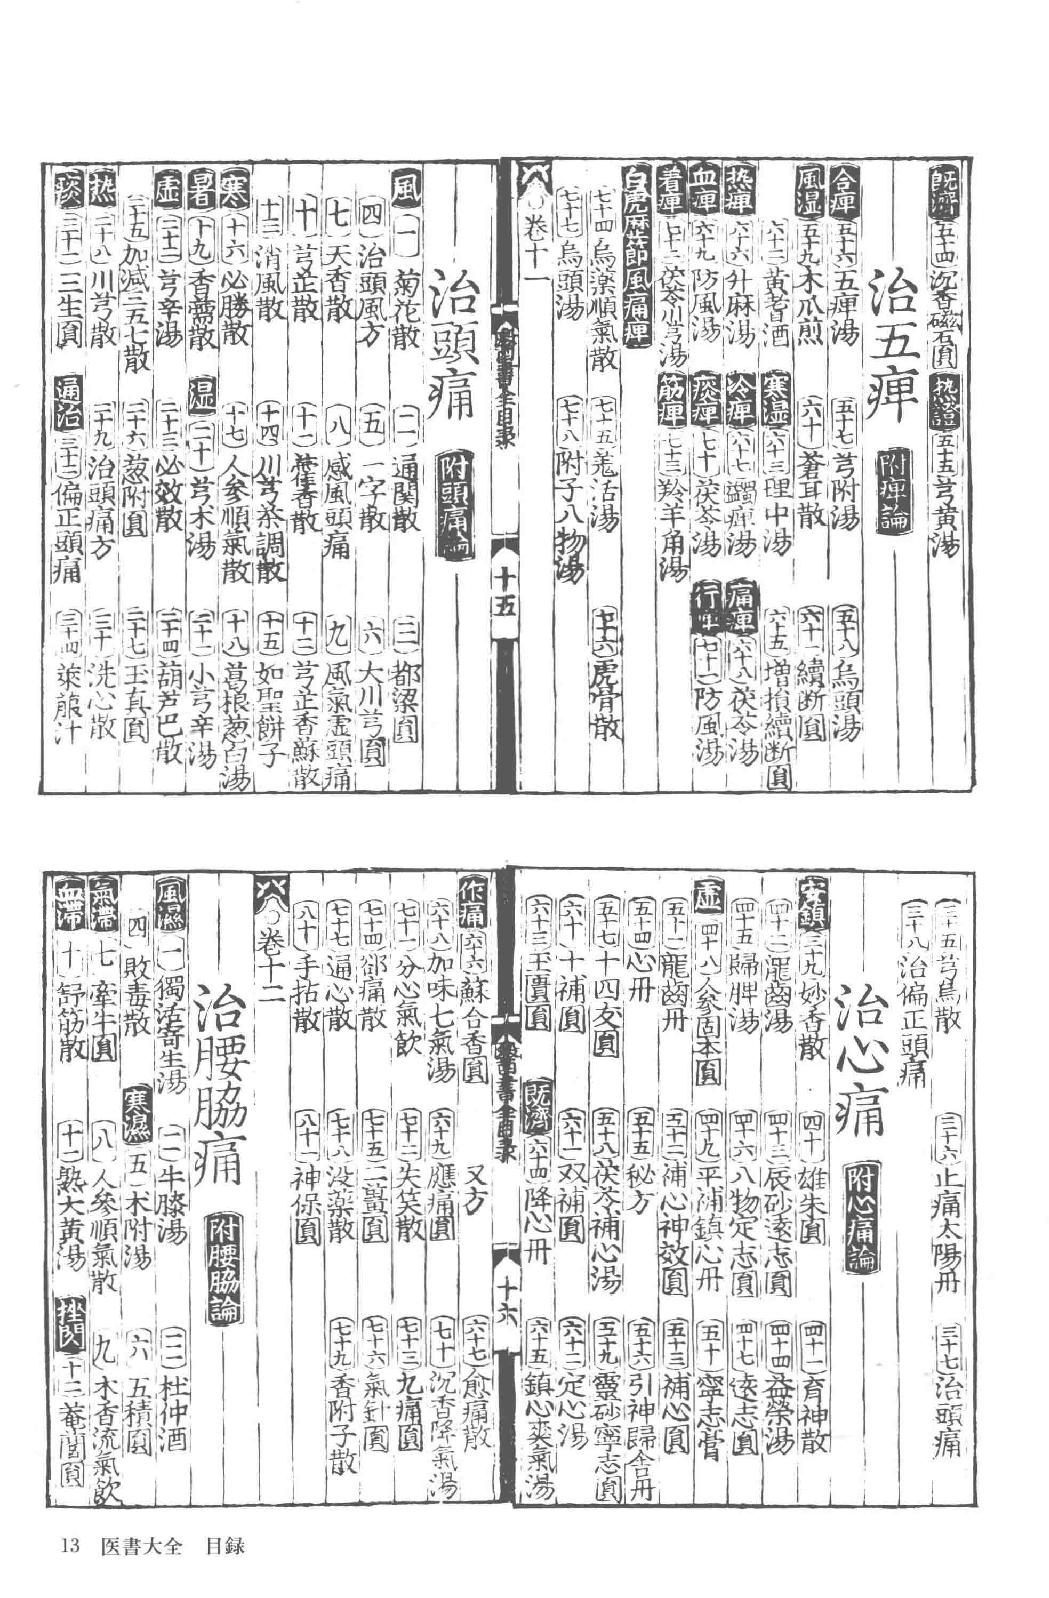 既濟 五十四 沉香磁石圓 热證 五十五 芎黄湯
治五痺 附痺論
合痺 五十六 五痺湯 五十七 芎附湯 五十八 烏頭湯
風湿 五十九 木瓜煎 六十 蒼耳散 六十一 續断圓
六十二 黄耆酒 寒湿 六十三 理中湯 六十五 增損續断圓
热痺 六十六 升麻湯 冷痺 六十七 蠲痺湯 痛痺 六十八 茯苓湯
血痺 六十九 防風湯 痰痺 七十 茯苓湯 行痺 七十一 防風湯
着痺 七十二 茯苓川芎湯 筋痺 七十三 羚羊角湯
白虎歷節風痛痺
七十四 烏藥順氣散 七十五 羗活湯 七十六 虎骨散
七十七 烏頭湯 七十八 附子八物湯
卷十一
醫書全目录 十五
治頭痛 附頭痛論
風 一 菊花散 二 通関散 三 都梁圓
四 治頭風方 五 一字散 六 大川芎圓
七 天香散 八 感風頭痛 九 風氣虚頭痛
十 芎芷散 十一 藿香散 十二 芎芷香蘇散
十三 消風散 十四 川芎茶調散 十五 如聖餅子
寒 十六 必勝散 十七 人参順氣散 十八 葛根葱白湯
暑 十九 香薷散 湿 二十 芎术湯 二十一 小芎辛湯
虚 二十二 芎辛湯 二十三 必效散 二十四 葫芦巴散
二十五 加減三五七散 二十六 葱附圓 二十七 玉真圓
热 二十八 川芎散 二十九 治頭痛方 三十 洗心散
痰 三十二 三生圓 通治 三十三 偏正頭痛 三十四 萊菔汁
三十五 芎烏散 三十六 止痛太陽丹 三十七 治頭痛
三十八 治偏正頭痛
治心痛 附心痛論
安鎮 三十九 妙香散 四十 雄朱圓 四十一 育神散
四十二 龍齒湯 四十三 辰砂遠志圓 四十四 益榮湯
四十五 歸脾湯 四十六 八物定志圓 四十七 遠志圓
虚 四十八 人參固本圓 四十九 平補鎮心丹 五十 寧志膏
五十一 龍齒丹 五十二 補心神效圓 五十三 補心圓
五十四 心丹 五十五 秘方 五十六 引神歸舍丹
五十七 十四友圓 五十八 茯苓補心湯 五十九 靈砂寧志圓
六十 十補圓 六十一 双補圓 六十二 定心湯
六十三 玉匱圓 既濟 六十四 降心丹 六十五 鎮心爽氣湯
醫書全目录 十六
作痛 六十六 蘇合香圓 又方 六十七 愈痛散
六十八 加味七氣湯 六十九 應痛圓 七十 沉香降氣湯
七十一 分心氣飲 七十二 失笑散 七十三 九痛圓
七十四 卻痛散 七十五 二薑圓 七十六 氣針圓
七十七 通心散 七十八 没藥散 七十九 香附子散
八十 手拈散 八十一 神保圓
卷十二
治腰脇痛 附腰脇論
風濕 一 獨活寄生湯 二 牛膝湯 三 杜仲酒
四 敗毒散 寒濕 五 木附湯 六 五積圓
氣滯 七 牽牛圓 八 人參順氣散 九 木香流氣飲
血滞 十 舒筋散 十一 熟大黄湯 挫閃 十二 菴䕡圓
13 医書大全 目録